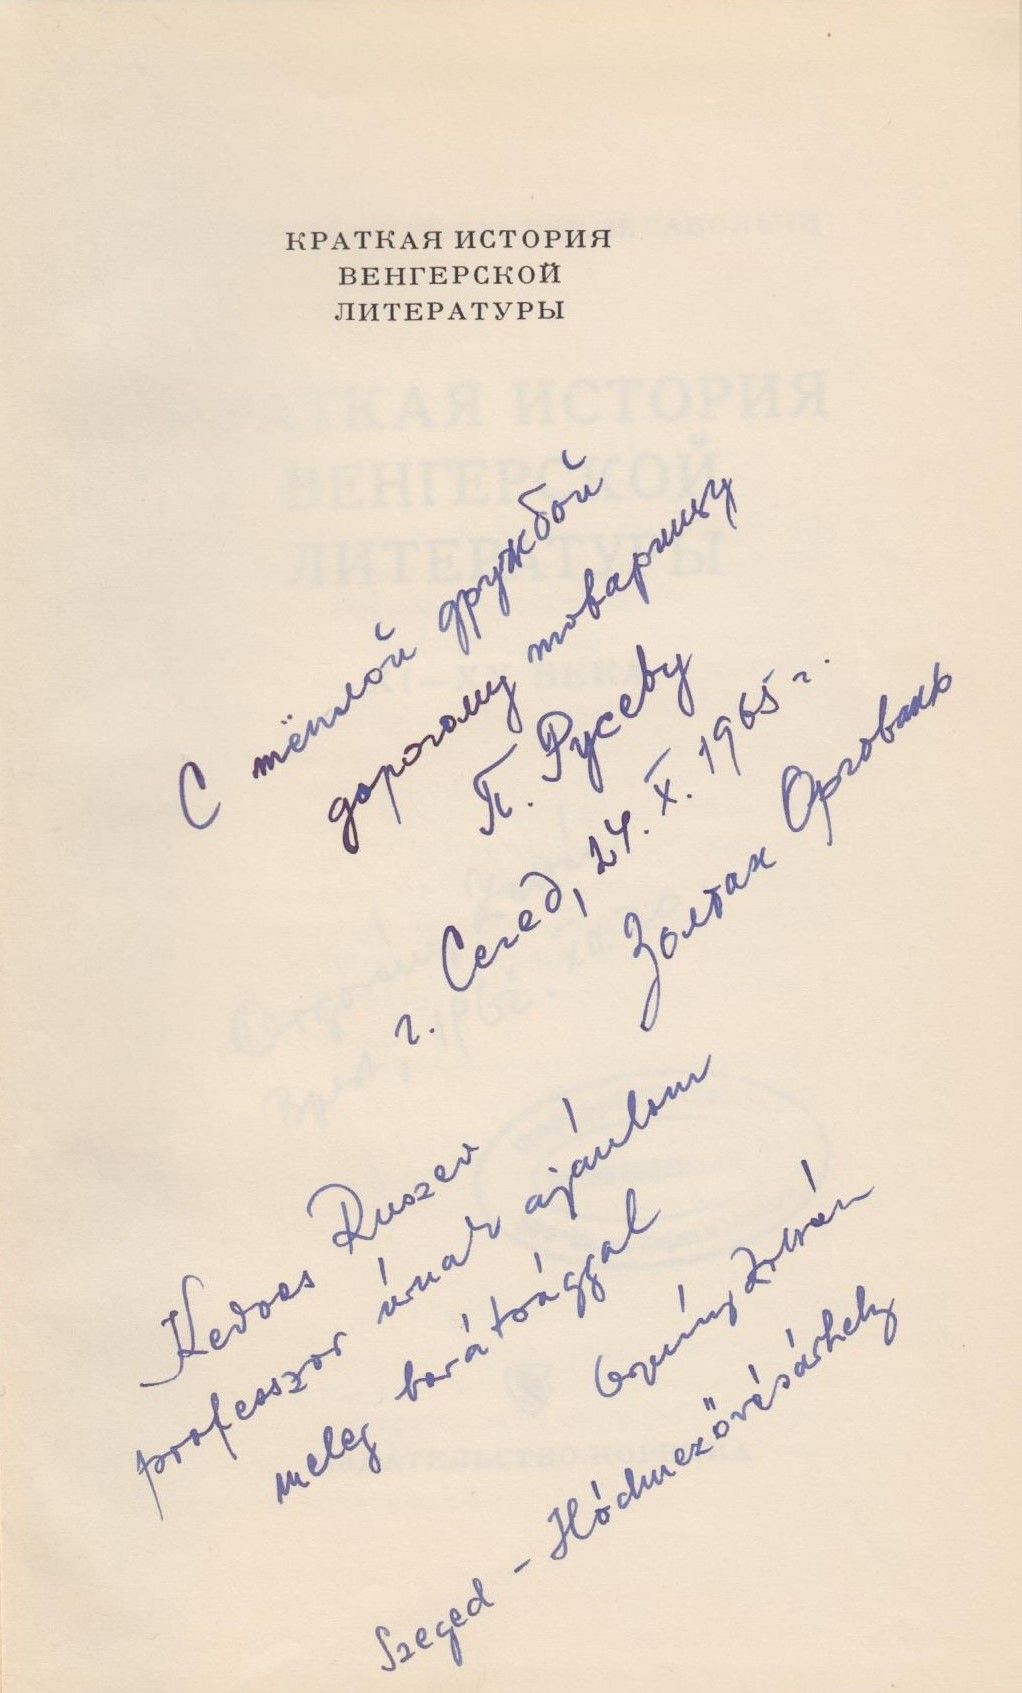 КРАТКАЯ ИСТОРИЯ
ВЕНГЕРСКОЙ
ЛИТЕРАТУРЫ
С тёплой дружбой
дорогому товарищу
П. Русеву
г. Сегед, 24. X. 1965 г.
Золтан Орговань
Kedves Ruszev
professzor úrnak ajánlom
meleg barátsággal
Zoltán
Szeged - Hódmezővásárhely